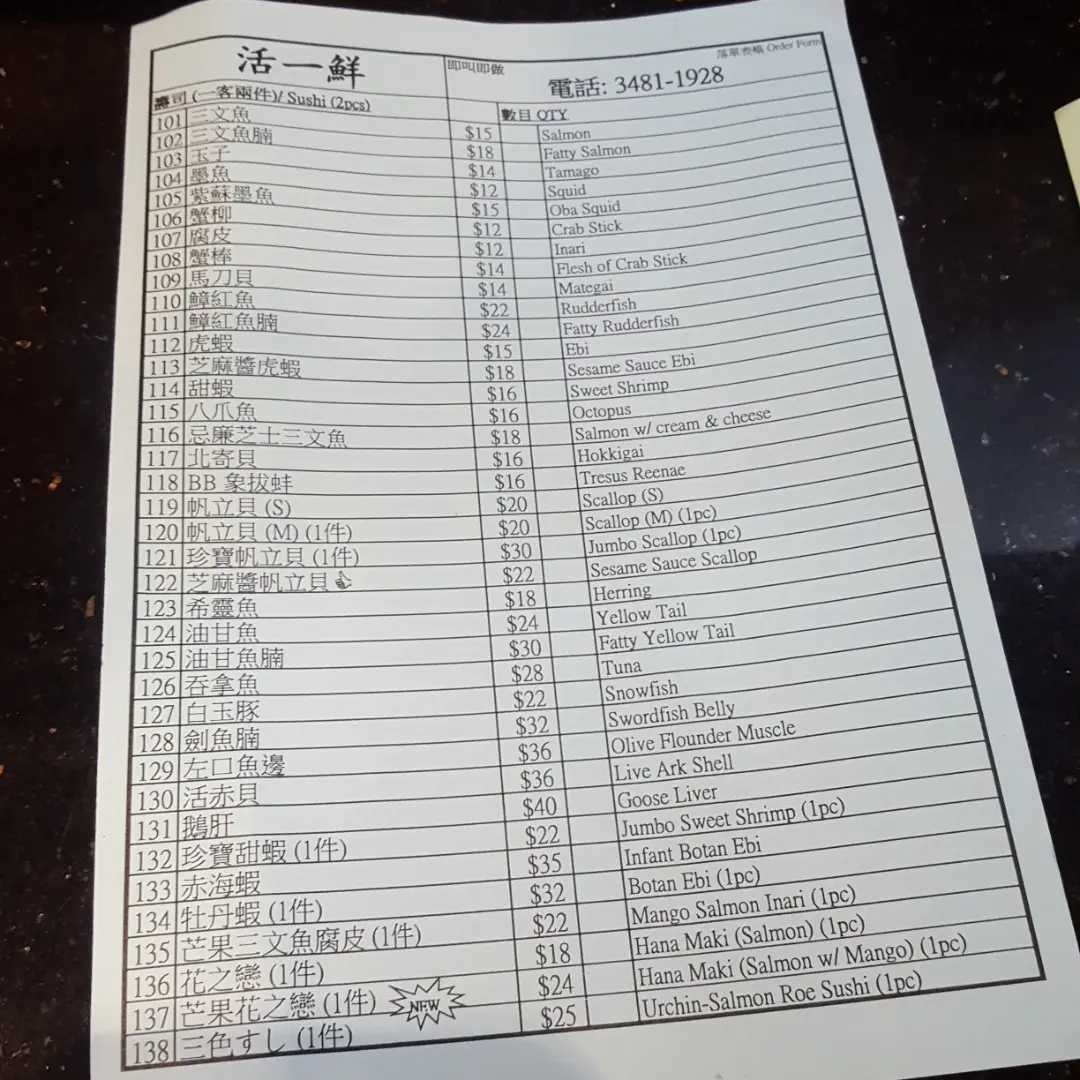 活一鮮
即叫即做
落單表格 Order Form
電話: 3481-1928
壽司 (一客兩件)/ Sushi (2pcs)
數目 QTY
101 三文魚 $15 Salmon
102 三文魚腩 $18 Fatty Salmon
103 玉子 $14 Tamago
104 墨魚 $12 Squid
105 紫蘇墨魚 $15 Oba Squid
106 蟹柳 $12 Crab Stick
107 腐皮 $12 Inari
108 蟹棒 $14 Flesh of Crab Stick
109 馬刀貝 $14 Mategai
110 鱆紅魚 $22 Rudderfish
111 鱆紅魚腩 $24 Fatty Rudderfish
112 虎蝦 $15 Ebi
113 芝麻醬虎蝦 $18 Sesame Sauce Ebi
114 甜蝦 $16 Sweet Shrimp
115 八爪魚 $16 Octopus
116 忌廉芝士三文魚 $18 Salmon w/ cream & cheese
117 北寄貝 $16 Hokkigai
118 BB 象拔蚌 $16 Tresus Reenae
119 帆立貝 (S) $20 Scallop (S)
120 帆立貝 (M) (1件) $20 Scallop (M) (1pc)
121 珍寶帆立貝 (1件) $30 Jumbo Scallop (1pc)
122 芝麻醬帆立貝👍 $22 Sesame Sauce Scallop
123 希靈魚 $18 Herring
124 油甘魚 $24 Yellow Tail
125 油甘魚腩 $30 Fatty Yellow Tail
126 吞拿魚 $28 Tuna
127 白玉豚 $22 Snowfish
128 劍魚腩 $32 Swordfish Belly
129 左口魚邊 $36 Olive Flounder Muscle
130 活赤貝 $36 Live Ark Shell
131 鵝肝 $40 Goose Liver
132 珍寶甜蝦 (1件) $22 Jumbo Sweet Shrimp (1pc)
133 赤海蝦 $35 Infant Botan Ebi
134 牡丹蝦 (1件) $32 Botan Ebi (1pc)
135 芒果三文魚腐皮 (1件) $22 Mango Salmon Inari (1pc)
136 花之戀 (1件) $18 Hana Maki (Salmon) (1pc)
137 芒果花之戀 (1件) NEW $24 Hana Maki (Salmon w/ Mango) (1pc)
138 三色すし (1件) $25 Urchin-Salmon Roe Sushi (1pc)